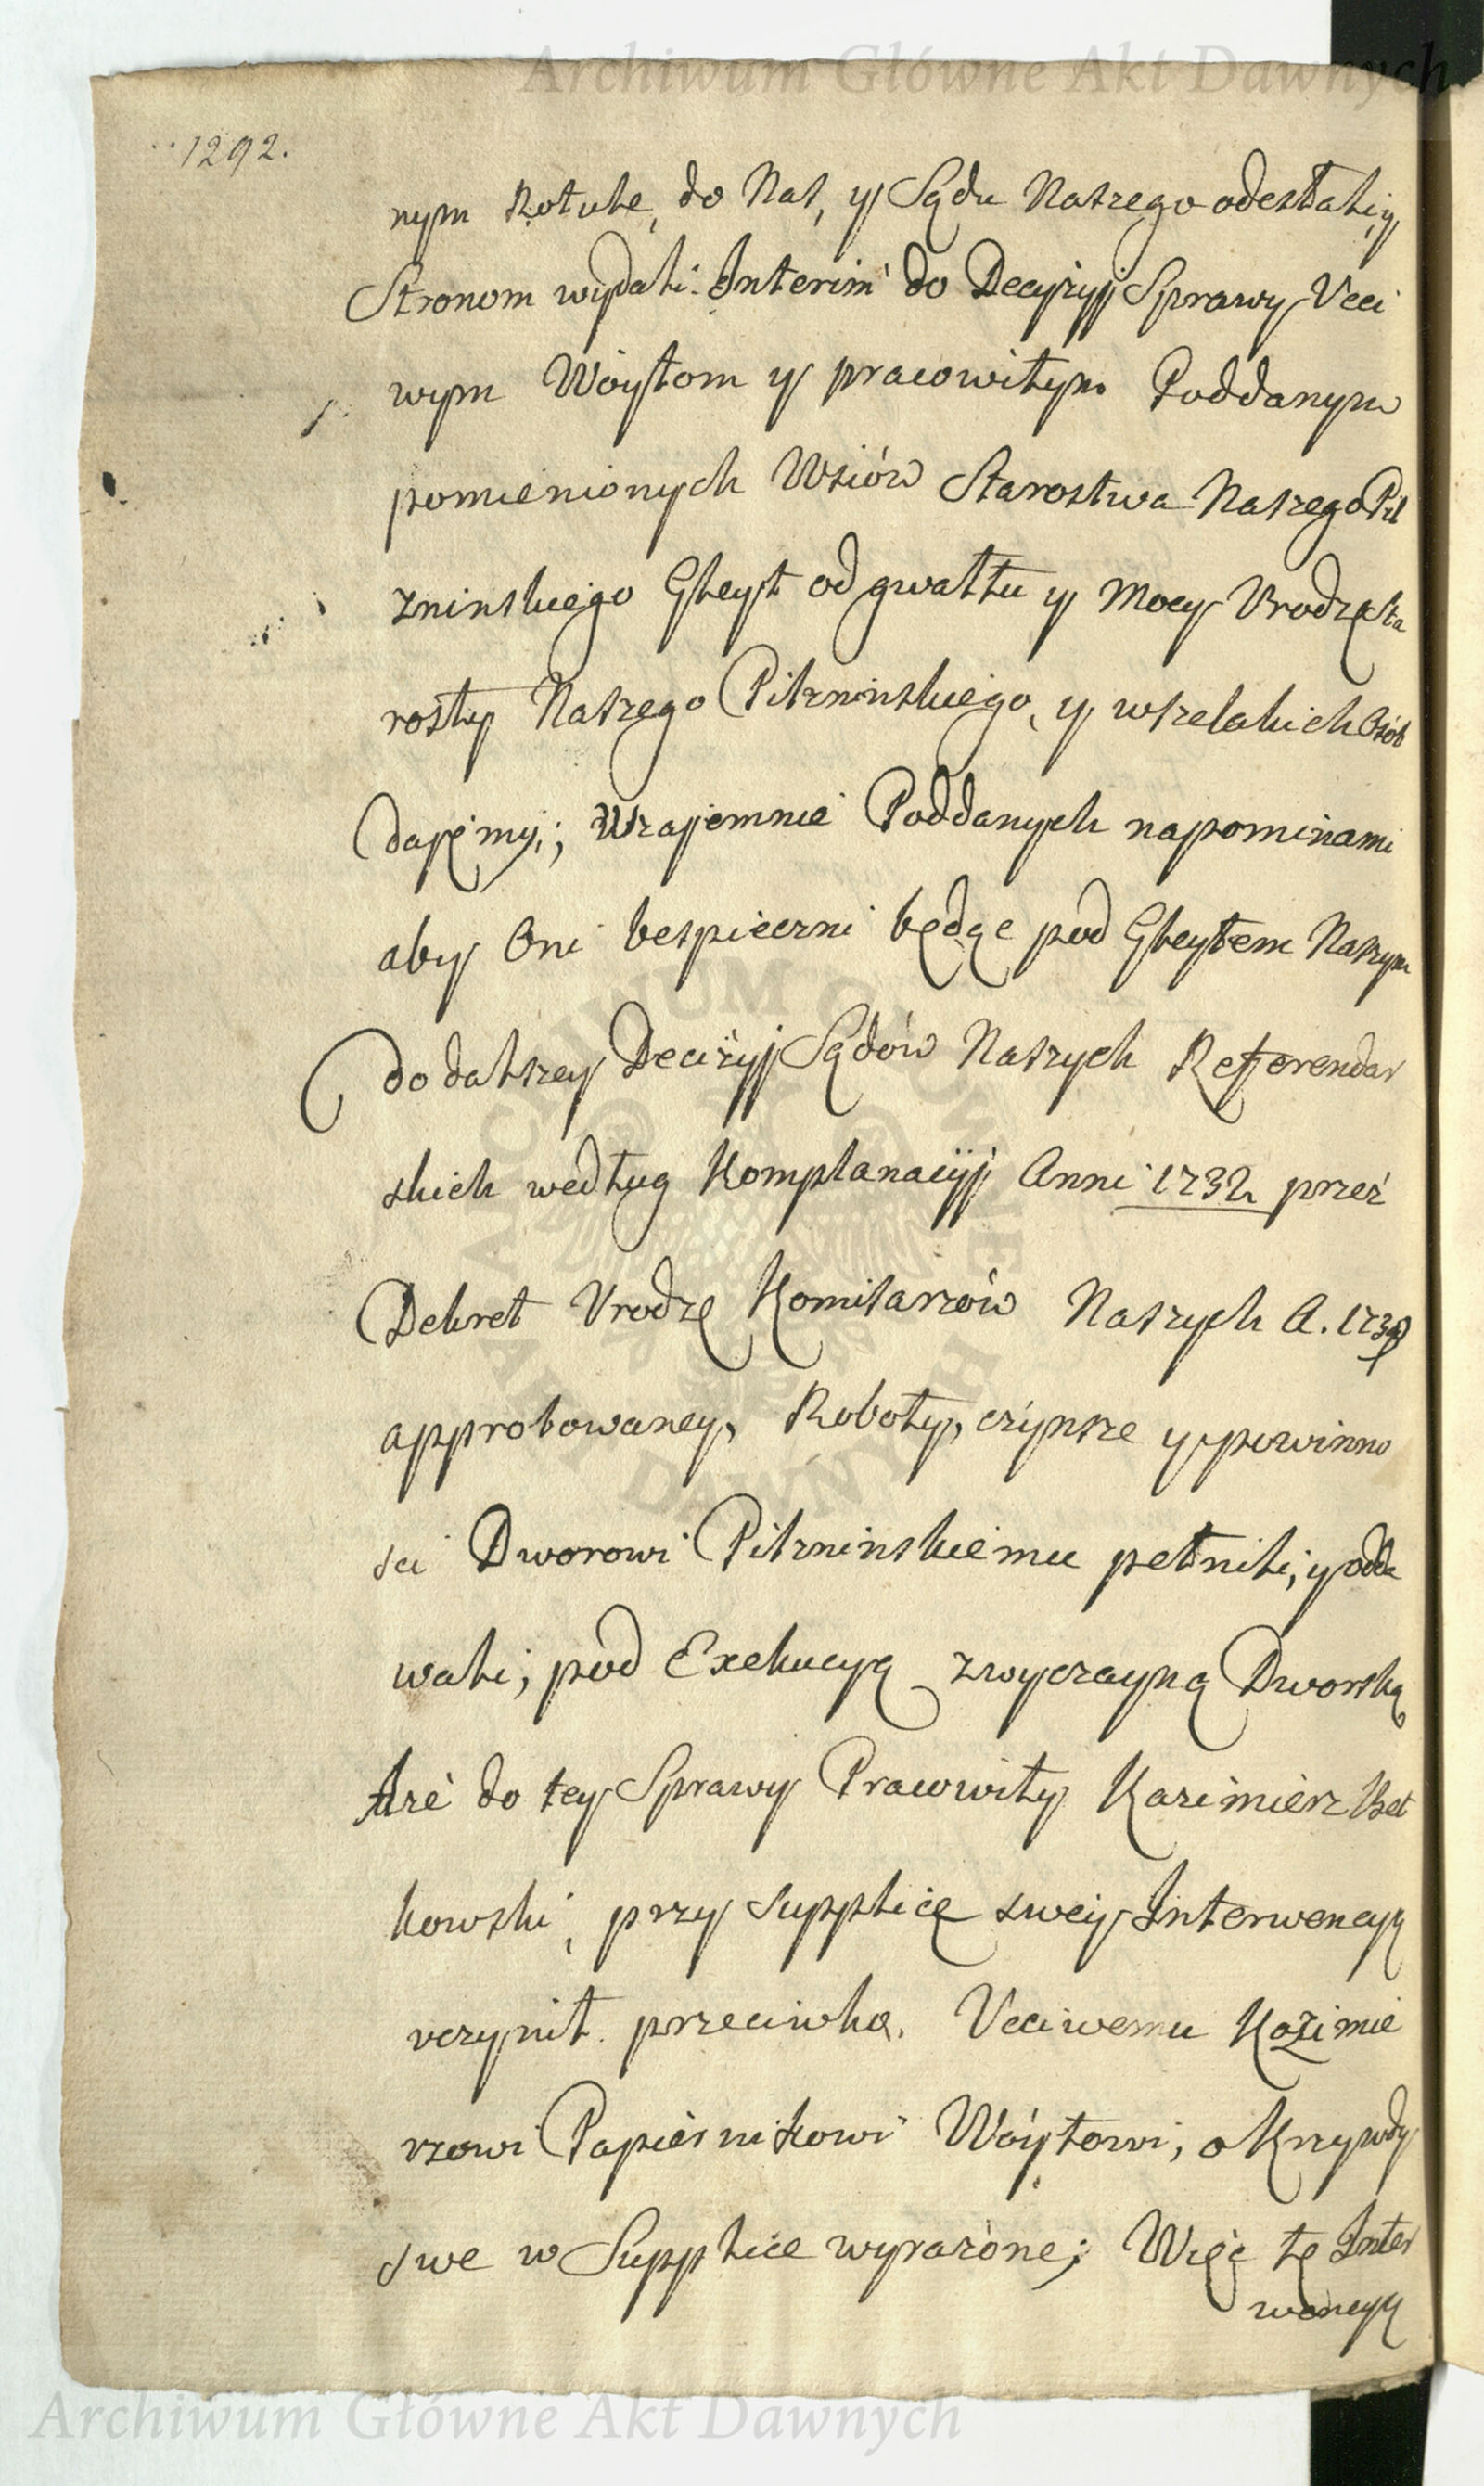 Archiwum Główne Akt Dawnych
1292.
nym Rotule, do Nas, y Sądu Naszego odesłali, y
Stronom wydali. Interim do Decyzyi Sprawy Vcci
wym Woytom y pracowitym Poddanym
pomienionych Wsiów Starostwa Naszego Pil
zninskiego Gleyt od gwałtu y Mocy Vrodzę Sta
rosty Naszego Pilzninskiego, y wszelakich Osób
daięmy; Wzaiemnie Poddanych napominami
aby Oni bespieczni będąc pod Gleytem Naszym
do dalszey Decizyi Sądów Naszych Referendar
skich według Komplanacyi Anni 1732 przez
Dekret Vrodzę Komisarzów Naszych A. 1739
approbowaney, Roboty, czynsze y powinno
sci Dworowi Pilzninskiemu pełnili, y odda
wali; pod Exekucyą zwyczayną Dworską
Aże do tey Sprawy Pracowity Kazimierz
kowski, przy Supplice swey Interwencyą
vczynił przeciwko Vcciwemu Kazimie
rzowi Papiernikowi Woytowi, o Krzywdy
swe w Supplice wyrażone; Więc tę Inter
wencyą
Archiwum Główne Akt Dawnych